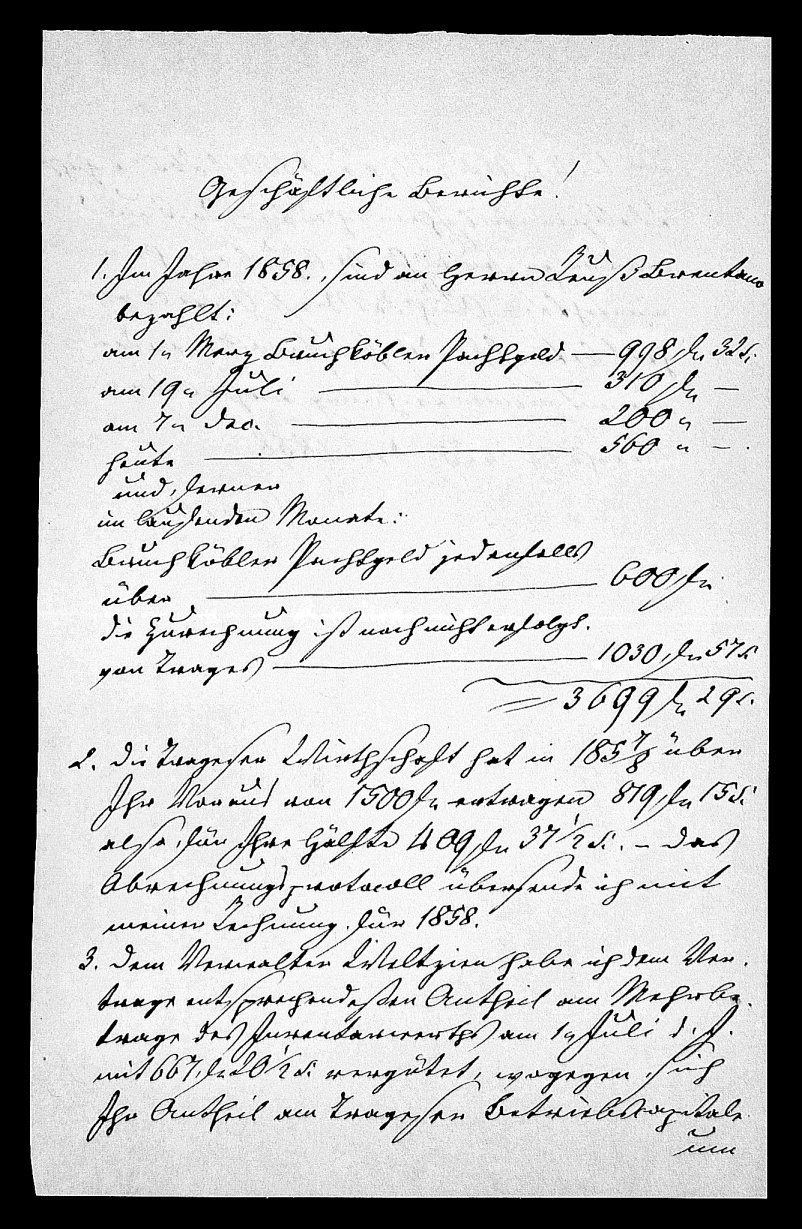 Geschäftliche Berichte!
1. Im Jahre 1858. sind an Herrn Louis Brentano
bezahlt:
am 1n Merz Bruchköbler Pachtgeld — 998 fn 32 x.
am 19n Juli — 310 fn —
am 7n Dec. — 200 " —
heute — 560 " — .
und ferner
im laufenden Monate:
Bruchköbler Pachtgeld jedenfalls
über — 600 fn
die Zurechnung ist noch nicht erfolgt.
von Trages — 1030 fn 57 x
= 3699 fn 29 x.
2. die Trageser Wirthschaft hat in 1857/8 über
Ihr Voraus von 1500 fn ertragen 819 fn 15 x.
also für Ihre Hälfte 409 fn 37 1/2 x. – Das
Abrechnungsprotocoll übersende ich mit
meiner Rechnung für 1858.
3. Dem Verwalter Weltzien habe ich dem Ver-
trage entsprechend dessen Antheil am Mehrbe-
trage des Inventarwerths am 1n Juli d. J.
mit 667 fn 26 1/2 x. vergütet, wogegen sich
Ihr Antheil am Trageser Betriebskapitale
um